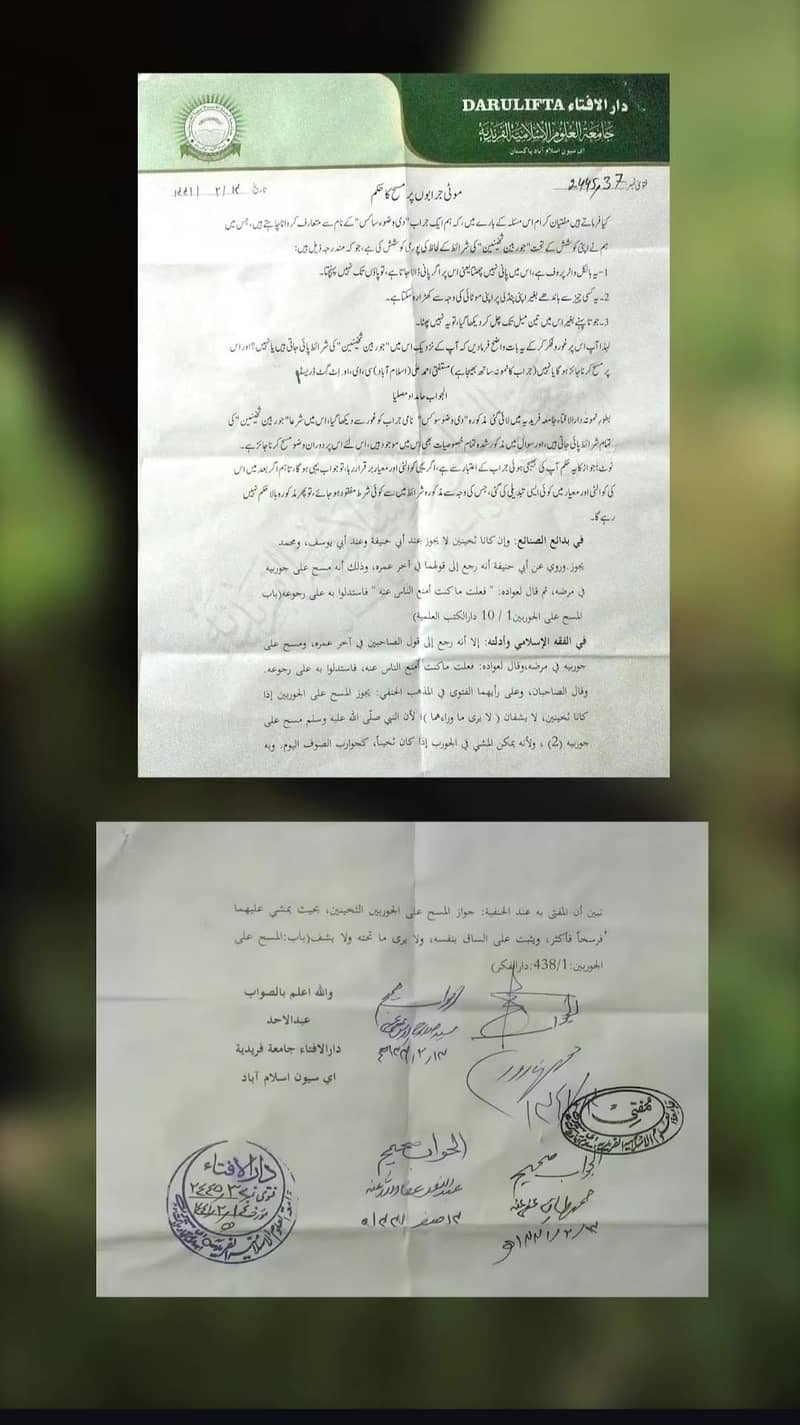 دار الافتاء DARULIFTA
جامعة العلوم الاسلامية الفريدية
ای سیون اسلام آباد پاکستان
فتویٰ نمبر: 2445,37
تاریخ
موٹی جرابوں پر مسح کا حکم
کیا فرماتے ہیں مفتیان کرام اس مسئلہ کے بارے میں، کہ ہم ایک جراب "دی وضوء ساکس" کے نام سے متعارف کروانا چاہتے ہیں، جس میں
ہم نے اپنی کوشش کے تحت "جوربین ثخینین" کی شرائط کے لحاظ کی پوری کوشش کی ہے، جو کہ مندرجہ ذیل ہیں:
1- یہ بالکل واٹر پروف ہے، اس میں پانی نہیں چھنتا یعنی اس پر اگر پانی ڈالا جاتا ہے، تو پاؤں تک نہیں پہنچتا۔
2- یہ کسی چیز سے باندھے بغیر اپنی پنڈلی پر اپنی موٹائی کی وجہ سے کھڑا رہ سکتا ہے۔
3- جوتا پہنے بغیر اس میں تین میل تک چل کر دیکھا گیا، تو یہ نہیں پھٹا۔
لہذا آپ اس پر غور و فکر کر کے یہ بات واضح فرمادیں کہ آپ کے نزدیک اس میں "جوربین ثخینین" کی شرائط پائی جاتی ہیں یا نہیں؟ اور اس
پر مسح کرنا جائز ہوگا یا نہیں (جراب کا نمونہ ساتھ بھیجا ہے) مستفتی احمد علی (اسلام آباد) سی، ای، او۔
الجواب حامدا و مصلیا
بطور نمونہ دارالافتاء جامعہ فریدیہ میں لائی گئی مذکورہ "دی وضوء سوکس" نامی جراب کو غور سے دیکھا گیا، اس میں شرعا "جوربین ثخینین" کی
تمام شرائط پائی جاتی ہیں، اور سوال میں مذکور شدہ تمام خصوصیات بھی اس میں موجود ہیں، اس لئے اس پر دوران وضو مسح کرنا جائز ہے۔
نوٹ: جواز کا یہ حکم آپ کی بھیجی ہوئی جراب کے اعتبار سے ہے، اگر یہی کوالٹی اور معیار برقرار رہا، تو جواب یہی ہوگا، تاہم اگر بعد میں اس
کی کوالٹی اور معیار میں کوئی ایسی تبدیلی کی گئی، جس کی وجہ سے مذکورہ شرائط میں سے کوئی شرط مفقود ہو جائے، تو پھر مذکورہ بالا حکم نہیں
رہے گا۔
في بدائع الصنائع: وإن كانا ثخينين لا يجوز عند أبي حنيفة وعند أبي يوسف، ومحمد
يجوز. وروي عن أبي حنيفة أنه رجع إلى قولهما في آخر عمره، وذلك أنه مسح على جوربيه
في مرضه، ثم قال لعواده: " فعلت ما كنت أمنع الناس عنه " فاستدلوا به على رجوعه (باب
المسح على الجوربين 1 / 10 دارالكتب العلمية)
في الفقه الإسلامي وأدلته: إلا أنه رجع إلى قول الصاحبين في آخر عمره، ومسح على
جوربيه في مرضه، وقال لعواده: فعلت ما كنت أمنع الناس عنه، فاستدلوا به على رجوعه.
وقال الصاحبان، وعلى رأيهما الفتوى في المذهب الحنفي: يجوز المسح على الجوربين إذا
كانا ثخينين، لا يشفان (لا يرى ما وراءهما)؛ لأن النبي صلّى الله عليه وسلم مسح على
جوربيه (2) ، ولأنه يمكن المشي في الجورب إذا كان ثخيناً، كجوارب الصوف اليوم. وبه
تبين أن المفتى به عند الحنفية: جواز المسح على الجوربين الثخينين، بحيث يمشي عليهما
فرسخاً فأكثر، ويثبت على الساق بنفسه، ولا يرى ما تحته ولا يشف (باب: المسح على
الجوربين: 438/1: دارالفكر)
والله اعلم بالصواب
عبدالاحد
دارالافتاء جامعة فريدية
ای سیون اسلام آباد
الجواب صحیح
الجواب صحیح
مفتی
الجواب صحیح
دار الافتاء